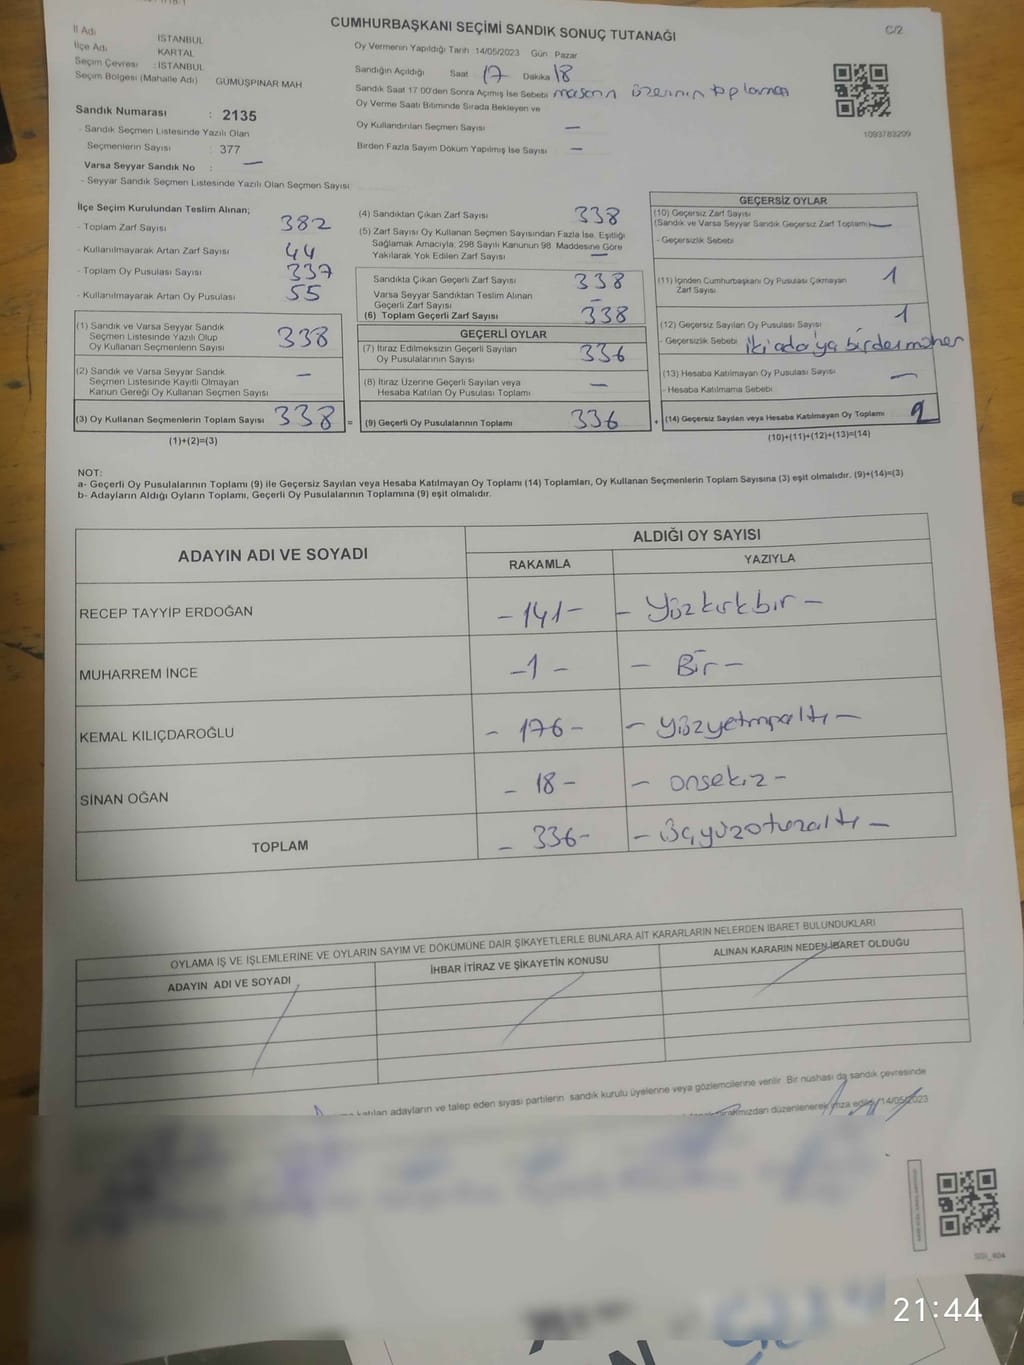 CUMHURBAŞKANI SEÇİMİ SANDIK SONUÇ TUTANAĞI
C/2
İl Adı İSTANBUL
İlçe Adı KARTAL
Seçim Çevresi : İSTANBUL
Seçim Bölgesi (Mahalle Adı) GÜMÜŞPINAR MAH
Sandık Numarası : 2135
- Sandık Seçmen Listesinde Yazılı Olan
Seçmenlerin Sayısı : 377
Varsa Seyyar Sandık No : —
- Seyyar Sandık Seçmen Listesinde Yazılı Olan Seçmen Sayısı
Oy Vermenin Yapıldığı Tarih : 14/05/2023 Gün : Pazar
Sandığın Açıldığı Saat 17 Dakika 18
Sandık Saat 17:00'den Sonra Açılmış İse Sebebi masanın üzerinin toplaması
Oy Verme Saati Bitiminde Sırada Bekleyen ve
Oy Kullandırılan Seçmen Sayısı —
Birden Fazla Sayım Döküm Yapılmış İse Sayısı —
1093783209
İlçe Seçim Kurulundan Teslim Alınan;
- Toplam Zarf Sayısı 382
- Kullanılmayarak Artan Zarf Sayısı 44
- Toplam Oy Pusulası Sayısı 337
- Kullanılmayarak Artan Oy Pusulası 55
(1) Sandık ve Varsa Seyyar Sandık
Seçmen Listesinde Yazılı Olup
Oy Kullanan Seçmenlerin Sayısı 338
(2) Sandık ve Varsa Seyyar Sandık
Seçmen Listesinde Kayıtlı Olmayan
Kanun Gereği Oy Kullanan Seçmen Sayısı —
(3) Oy Kullanan Seçmenlerin Toplam Sayısı 338 =
(1)+(2)=(3)
(4) Sandıktan Çıkan Zarf Sayısı 338
(5) Zarf Sayısı Oy Kullanan Seçmen Sayısından Fazla İse, Eşitliği
Sağlamak Amacıyla, 298 Sayılı Kanunun 98. Maddesine Göre
Yakılarak Yok Edilen Zarf Sayısı —
Sandıkta Çıkan Geçerli Zarf Sayısı 338
Varsa Seyyar Sandıktan Teslim Alınan
Geçerli Zarf Sayısı –
(6) Toplam Geçerli Zarf Sayısı 338
GEÇERLİ OYLAR
(7) İtiraz Edilmeksizin Geçerli Sayılan
Oy Pusulalarının Sayısı 336
(8) İtiraz Üzerine Geçerli Sayılan veya
Hesaba Katılan Oy Pusulası Toplamı —
(9) Geçerli Oy Pusulalarının Toplamı 336 +
GEÇERSİZ OYLAR
(10) Geçersiz Zarf Sayısı
(Sandık ve Varsa Seyyar Sandık Geçersiz Zarf Toplamı) —
- Geçersizlik Sebebi
(11) İçinden Cumhurbaşkanı Oy Pusulası Çıkmayan
Zarf Sayısı 1
(12) Geçersiz Sayılan Oy Pusulası Sayısı 1
- Geçersizlik Sebebi iki aday'a birden mühür
(13) Hesaba Katılmayan Oy Pusulası Sayısı —
- Hesaba Katılmama Sebebi
(14) Geçersiz Sayılan veya Hesaba Katılmayan Oy Toplamı 2
(10)+(11)+(12)+(13)=(14)
NOT:
a- Geçerli Oy Pusulalarının Toplamı (9) ile Geçersiz Sayılan veya Hesaba Katılmayan Oy Toplamı (14) Toplamları, Oy Kullanan Seçmenlerin Toplam Sayısına (3) eşit olmalıdır. (9)+(14)=(3)
b- Adayların Aldığı Oyların Toplamı, Geçerli Oy Pusulalarının Toplamına (9) eşit olmalıdır.
ADAYIN ADI VE SOYADI ALDIĞI OY SAYISI
RAKAMLA YAZIYLA
RECEP TAYYİP ERDOĞAN -141- - Yüzkırkbir -
MUHARREM İNCE -1- - Bir -
KEMAL KILIÇDAROĞLU - 176 - - yüzyetmişaltı -
SİNAN OĞAN - 18 - - onsekiz -
TOPLAM - 336 - - üçyüzotuzaltı -
OYLAMA İŞ VE İŞLEMLERİNE VE OYLARIN SAYIM VE DÖKÜMÜNE DAİR ŞİKAYETLERLE BUNLARA AİT KARARLARIN NELERDEN İBARET BULUNDUKLARI
ADAYIN ADI VE SOYADI İHBAR İTİRAZ VE ŞİKAYETİN KONUSU ALINAN KARARIN NEDEN İBARET OLDUĞU
katılan adayların ve talep eden siyasi partilerin sandık kurulu üyelerine veya gözlemcilerine verilir. Bir nüshası da sandık çevresinde
tarafımızdan düzenlenerek imza edildi. 14/05/2023
21:44